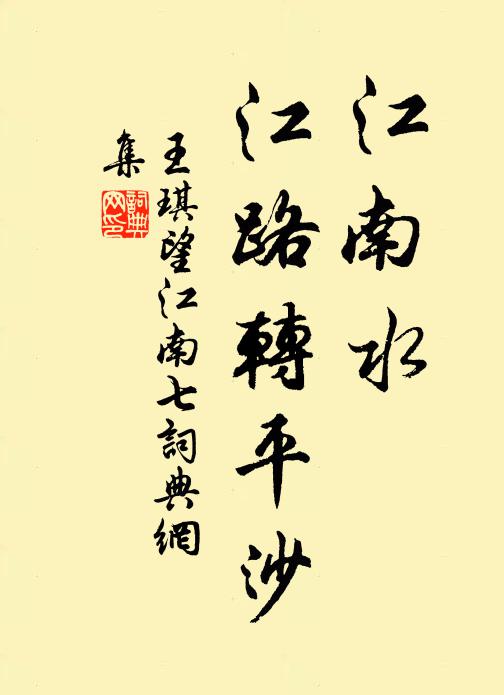 江南水
江路轉平沙
王琪望江南七詞典網
集
詞典網印